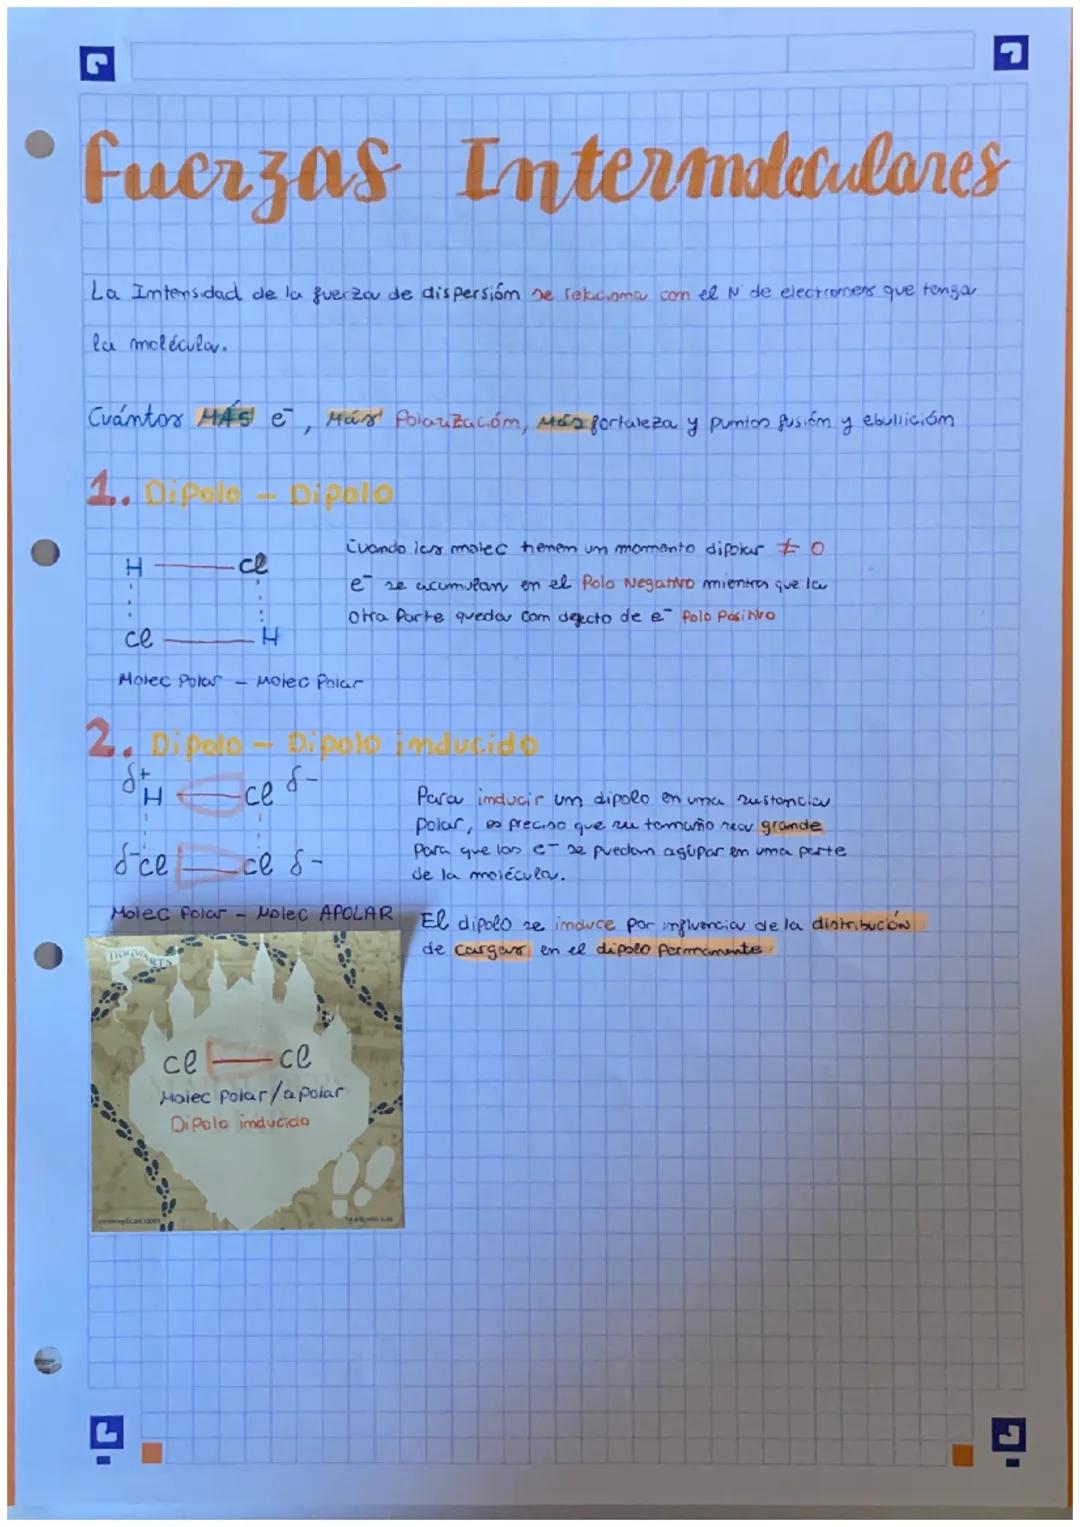 Fuerzas Intermoleculares
La Intensidad de la fuerza de dispersión se relaciona con el N de electrones que tenga
la molécula.
Cuántos MÁS e⁻, Más Polarización, Más fortaleza y puntos fusión y ebullición
1. Dipolo - Dipolo
H — Cl
Cl — H
Molec Polar - Molec Polar
Cuando las molec tienen un momento dipolar ≠ 0
e⁻ se acumulan en el Polo Negativo mientras que la
otra Parte queda con defecto de e⁻ Polo Positivo
2. Dipolo - Dipolo inducido
δ+ H Cl δ-
δ- Cl Cl δ-
Molec Polar - Molec APOLAR
Para inducir un dipolo en una sustancia
Polar, es preciso que su tamaño sea grande
Para que los e⁻ se puedan agupar en una parte
de la molécula.
El dipolo se induce por influencia de la distribución
de cargas, en el dipolo Permanente.
HOGWARTS
Cl — Cl
Molec Polar/apolar
Dipolo inducido